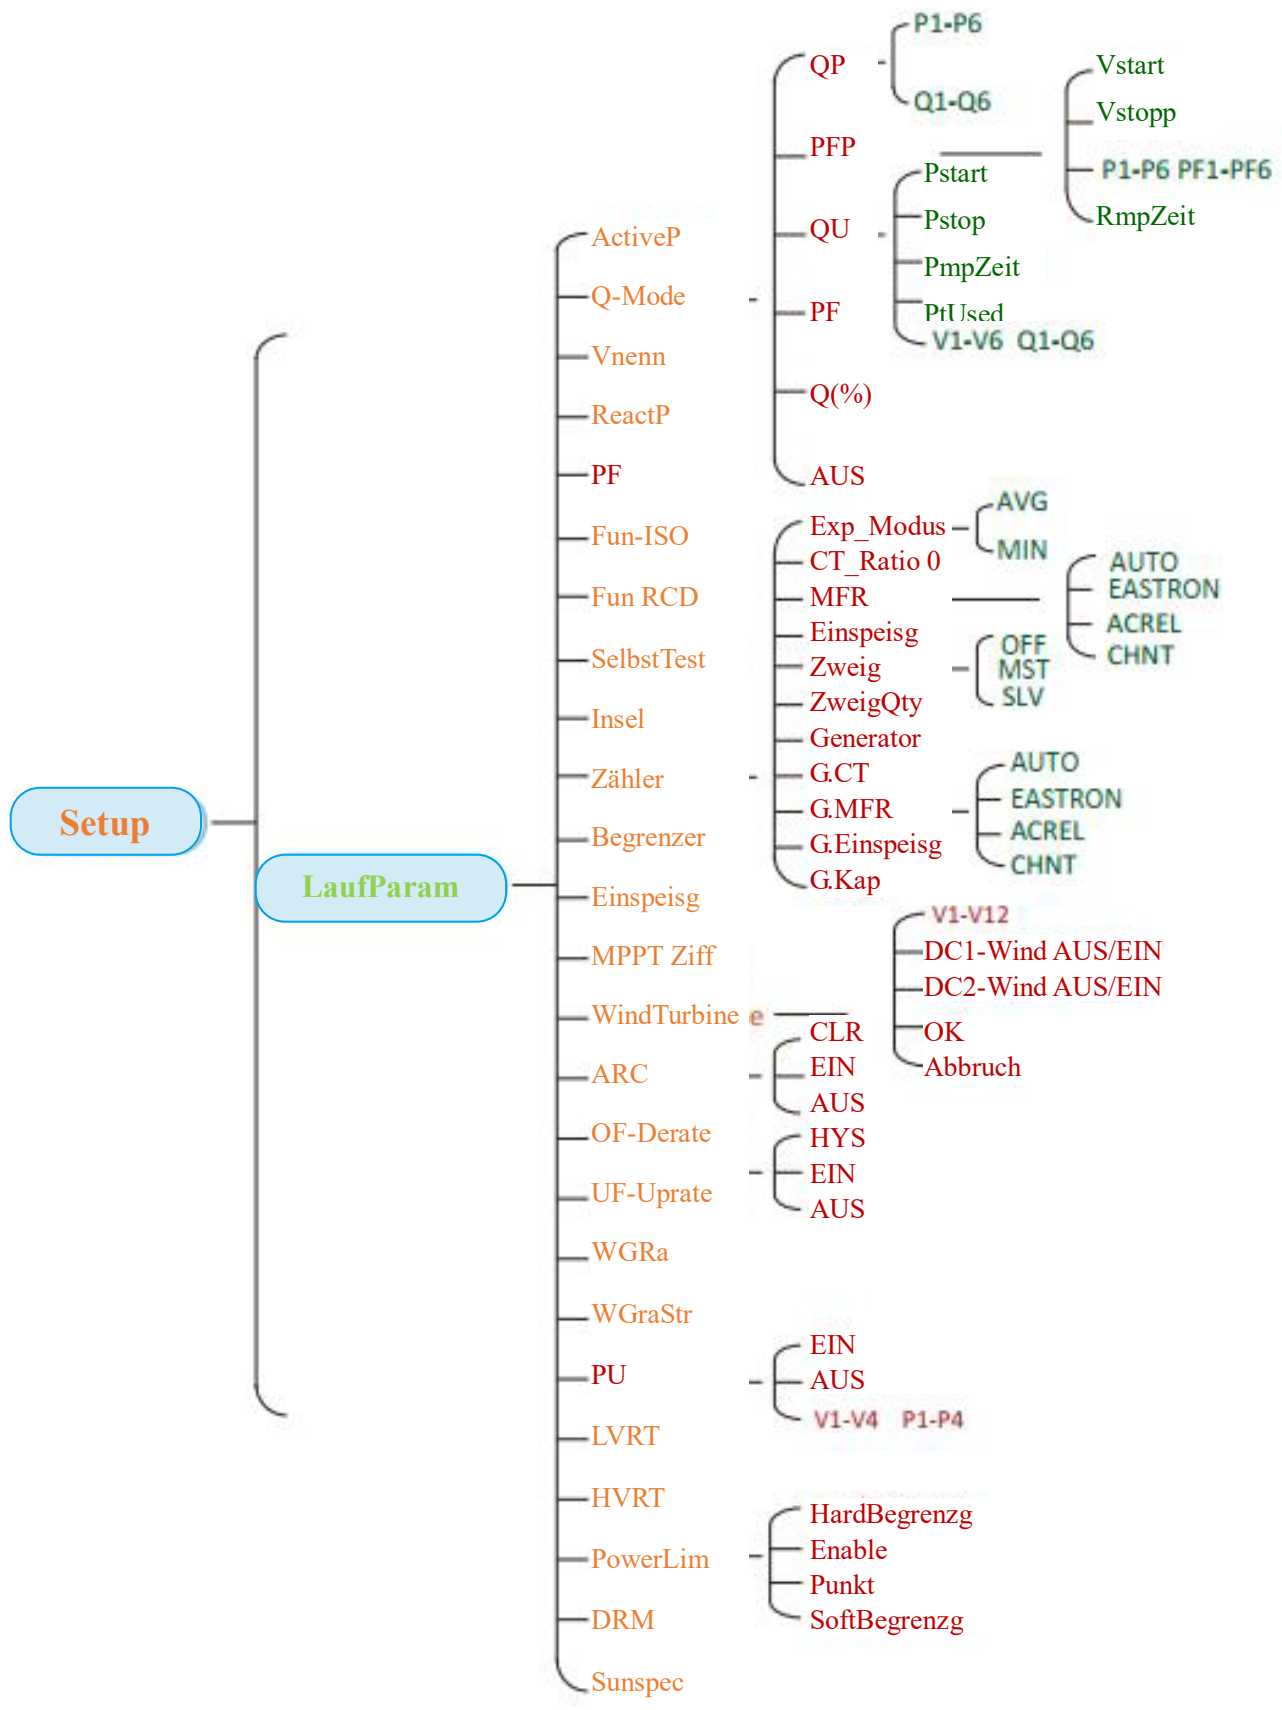 Setup
LaufParam
ActiveP
Q-Mode
Vnenn
ReactP
PF
Fun-ISO
Fun RCD
SelbstTest
Insel
Zähler
Begrenzer
Einspeisg
MPPT Ziff
WindTurbine e
ARC
OF-Derate
UF-Uprate
WGRa
WGraStr
PU
LVRT
HVRT
PowerLim
DRM
Sunspec
QP
PFP
QU
PF
Q(%)
AUS
P1-P6
Q1-Q6
Vstart
Vstopp
P1-P6 PF1-PF6
RmpZeit
Pstart
Pstop
PmpZeit
PtUsed
V1-V6 Q1-Q6
Exp_Modus
CT_Ratio 0
MFR
Einspeisg
Zweig
ZweigQty
Generator
G.CT
G.MFR
G.Einspeisg
G.Kap
AVG
MIN
AUTO
EASTRON
ACREL
CHNT
OFF
MST
SLV
AUTO
EASTRON
ACREL
CHNT
V1-V12
DC1-Wind AUS/EIN
DC2-Wind AUS/EIN
OK
Abbruch
CLR
EIN
AUS
HYS
EIN
AUS
EIN
AUS
V1-V4 P1-P4
HardBegrenzg
Enable
Punkt
SoftBegrenzg